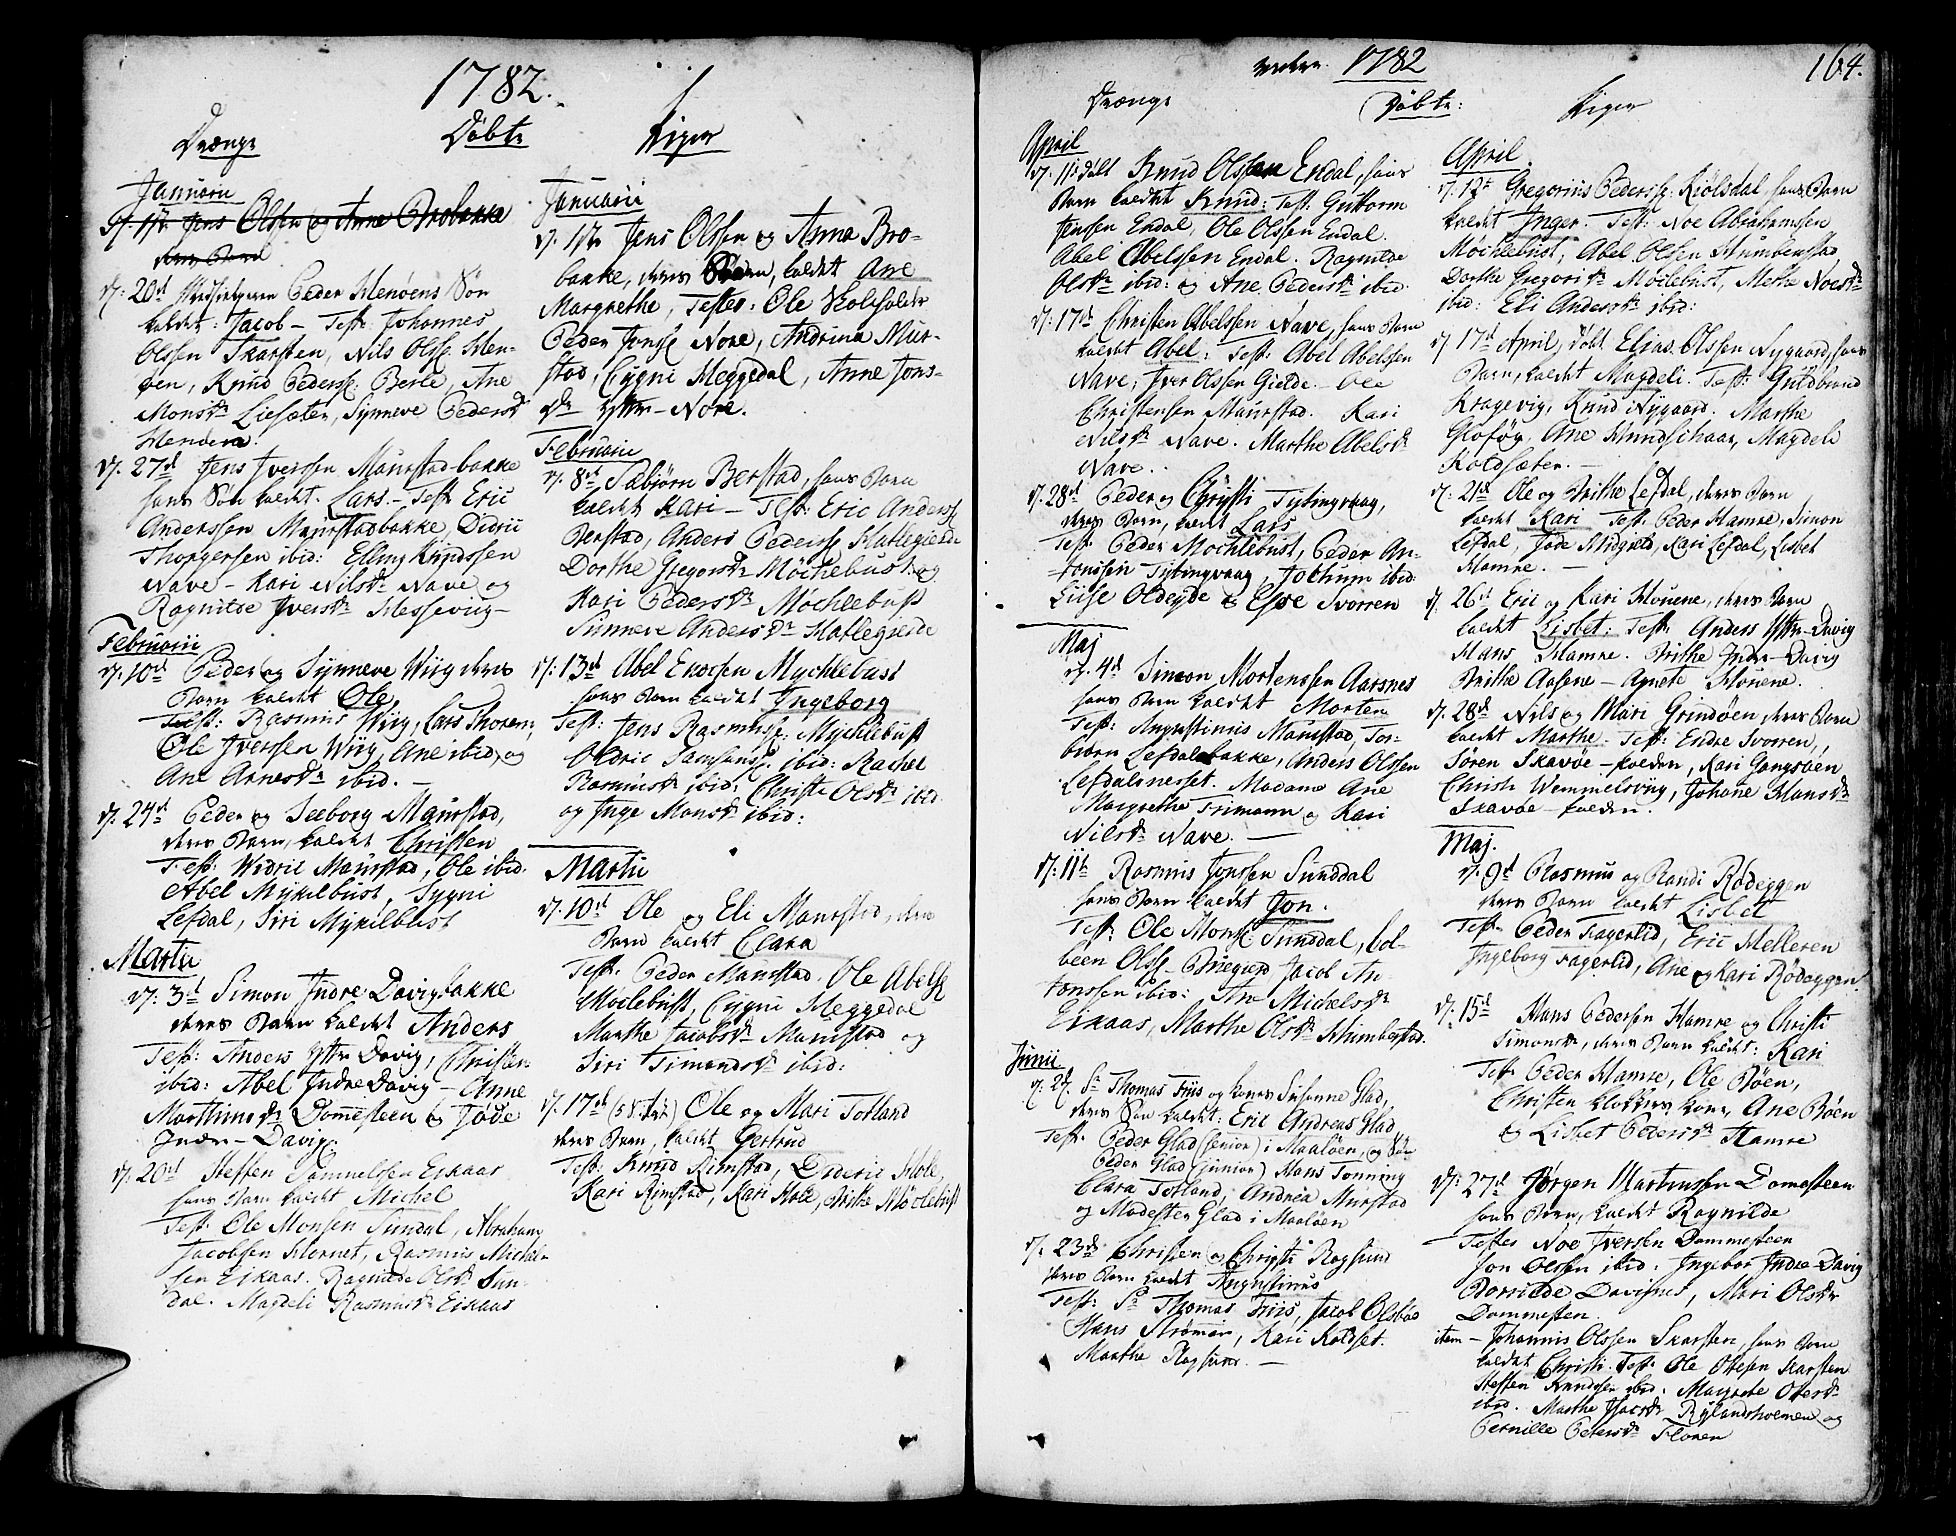 1782.
Drænge
Døbte
Piger
Januarii
d. 1ste Jens Olssen og Anne Brobakke
deres Barn
d: 20de Peder Henøens Søn
kaldet: Jacob - Test: Johannes
Olssen Skarsten, Nils Olss: Hen-
øen, Knud Pederss: Berle, Ane
Monsdr Liesæter, Synneve Pedersdr
Henøen.
d. 27de Jens Iverssen Maurstadbakke
hans Søn kaldet. Lars. - Test Eric
Anderssen Maurstadbakke, Didric
Thorgersen ibid: Elling Knudssen
Nave - Kari Nilsdr Nave og
Ragnilde Iversdr Hessevig -
Februarii
d: 10de Peder og Synneve Wiig deres
Barn kaldet Ole,
Test: Rasmus Wiig, Lars Thoren,
Ole Iverssen Wiig, Ane ibid, og
Ane Arnesdr ibid. -
d. 24de Peder og Seeborg Maurstad,
deres Barn, kaldet Christen
Test: Didric Maurstad, Ole ibid.
Abel Mykelbust, Sygni
Lefdal, Siri Mykilbust
Martii
d. 3de Simon Indre Davigbakke
deres Barn kaldet Anders
Test: Anders Ytre Davig, Christen
ibid: Abel Indre Davig - Anne
Marthinusdr Domesteen og Jøde
Indre - Davig.
d. 20de Steffen Sammelsen Eikaas
hans Barn kaldet Michel
Test: Ole Monsen Sundal, Abraham
Jacobsen Hornet, Rasmus Michel-
sen Eikaas. Ragnilde Olsdr Sun-
dal. Magdeli Rasmusdr Eikaas
Januarii
d. 1ste Jens Olssen og Anna Bro-
bakke, deres Barn, kaldet Ane
Margrethe, Testes: Ole Holesoldr
Peder Jonss: Nore, Andrina Mur-
stad, Cygni Heggedal, Anne Jons-
dr Ytre - Nore.
Februarii
d. 8de Sabiørn Berstad, hans Barn
kaldet Kari - Test: Eric Anderss:
Berstad, Anders Pederss Hatlegierde
Dorthe Gregorsdr Møchlebust og
Kari Pedersdr Møchlebust
Sunneve Andersdr Hatlegierde
d: 13de Abel Enocsen Mychlebust
hans Barn kaldet Ingeborg
Test: Jens Rasmuss: Mychlebust
Oldric Samsonss: ibid: Rachel
Rasmusdr ibid. Christi Olsdr ibid.
og Inge Monsdr ibid:
Martii
d. 10de Ole og Eli Maurstad, deres
Barn kaldet Clara
Test: Peder Maurstad. Ole Abelss
Møclebust, Cygni Heggedal
Marthe Jacobsdr Maurstad og
Siri Simonsdr ibid:
d. 17de Ole og Mari Totland
deres Barn, kaldet Gertrud
Test: Knud Rimstad, Dideric Hole,
Kari Rimstad, Kari Hole, Møclebust
1782
164.
Drænge
Døbte:
Piger
April
d. 11te døbt Knud Olssen Endal, hans
Barn kaldet Knud: Test: Guttorm
Jenssen Endal, Ole Olssen Endal.
Abel Abelssen Endal. Ragnilde
Olsdr ibid: og Ane Pedersdr ibid.
d: 17de Christen Abelssen Nave, hans Barn
kaldet Abel: Test: Abel Abelsen
Nave, Iver Olssen Gielde. Ole
Christensen Maurstad. Kari
Nilsdr Nave. Marthe Abelsdr
Nave.
d. 28de Peder og Christi Tytingvaag,
deres Barn, kaldet Lars
Test: Peder Mochlebust, Peder An-
tonssen Tytingvaag, Jochum ibid.
Lisse Oldeyde & Else Svorren
Maj
d. 4de Simon Mortenssen Aarsnes
hans Barn kaldet Morten
Test: Augustinus Maurstad, Tor-
biørn Lefdalsbakke, Anders Olssen
Lefdalsnesset. Madame Ane
Margrethe Frimann og Kari
Nilsdr Nave. -
d: 11te Rasmus Jonssen Sunddal
hans Barn kaldet Jon.
Test: Ole Monss Sunddal, Col-
been Olss. Jacob An-
tonssen ibid: An Michelsdr
Eikaas, Marthe Olsdr Humberstad.
Junii
d. 2d. Sr Thomas Friis og Kones Susanne Glad,
deres Søn kaldet: Eric Andreas Glad,
Test: Peder Glad (senior) i Maaløen, og
Peder Glad (junior) Hans Tonning
Clara Totland, Andrea Murstad
og Madester Glad i Maaløen
d. 23de Christen og Christi Ragsund
deres Barn kaldet Augustinus
Test: Sr Thomas Friis, Jacob Olsbad
Hans Strømøn, Kari Koldset.
Marthe Ragsund. -
April.
d. 12te Gregorius Pederss: Kiølsdal, hans Barn
kaldet Inger. Test: Noe Abrahamsen
Møchlebust, Abel Olsen Humbenstad,
Dorthe Gregorisdr Møclebust, Mothe Noesdr
ibid: Eli Andersdr ibid:
d 17de April, døbt Elias Olssen Nygaard, hans
Barn, kaldet Magdeli. Test: Guldbrand
Kragevig, Knud Nygaard. Marthe
Gloføy, Ane Hundschaar, Magdeli
Koldsæter. -
d: 21de Ole og Brithe Lefdal, deres Barn
kaldet Kari Test: Peder Hamre, Simon
Lefdal, Jøde Midgield, Kari Lefdal, Lisbet
Hamre. -
d. 26de Eric og Kari Houene, deres Barn
kaldet Lisbet: Test: Anders Ytre-Davig
Hans Hamre. Brithe Indre-Davig
Brithe Aasene - Agnete Hounene.
d. 28de Nils og Mari Grindøen, deres Barn
kaldet Marthe. Test: Endre Svorren,
Søren Skavøe - Kolden, Kari Gangsøen
Christi Wemmelsvig, Johane Hansdr
Skavøe - Kolden.
Maj.
d. 9de Rasmus og Randi Rødeggen
deres Barn kaldet Lisbet
Test: Peder Fagerlid, Eric Melleren
Ingeborg Fagerlid, Ane og Kari Rødeggen.
d: 15de Hans Pedersen Hamre og Christi
Simonsdr, deres Barn kaldet: Kari
Test: Peder Hamre, Ole Bøen,
Christen Klokkers Kone, Ane Bøen
& Lisbet Petersdr Hamre
d: 27de Jørgen Martinssen Domesteen
hans Barn, kaldet Ragnilde
Testes Noe Iversen Dommesteen
Jon Olssen ibid. Ingebor Indre-Davig
Borrilde Davignes, Mari Olsdr
Dommesten.
item - Johannis Olssen Skarsten, hans Barn
kaldet Christi. Test: Ole Olesen Skarsten
Steffen Knudssen ibid. Margrete Olesdr
ibid. Marthe Rylandsholmen og
Pernille Petersdr Floren